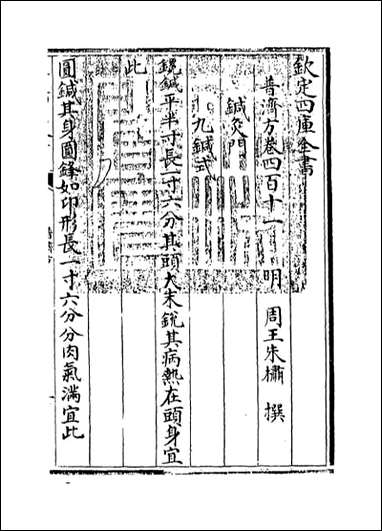 欽定四庫全書
普濟方卷四百十一　明　周王朱橚　撰
鍼灸門
九鍼式
鋭鍼平半寸長一寸六分其頭大末鋭其病熱在頭身宜
此
圓鍼其身圓鋒如卵形長一寸六分分肉氣滿宜此